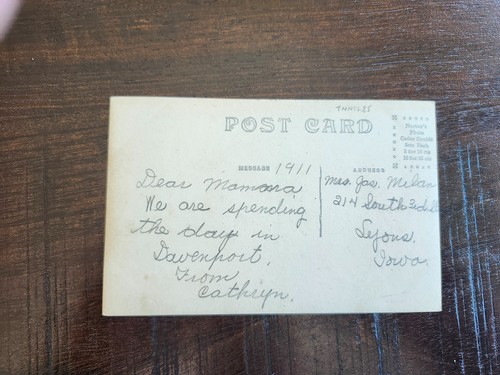 POST CARD
MESSAGE
1911
ADDRESS
Dear Mamma
We are spending
the day in
Davenport.
From
Cathryn.
Mrs. Jas. Milan
214 South 3rd St
Lyons.
Iowa.